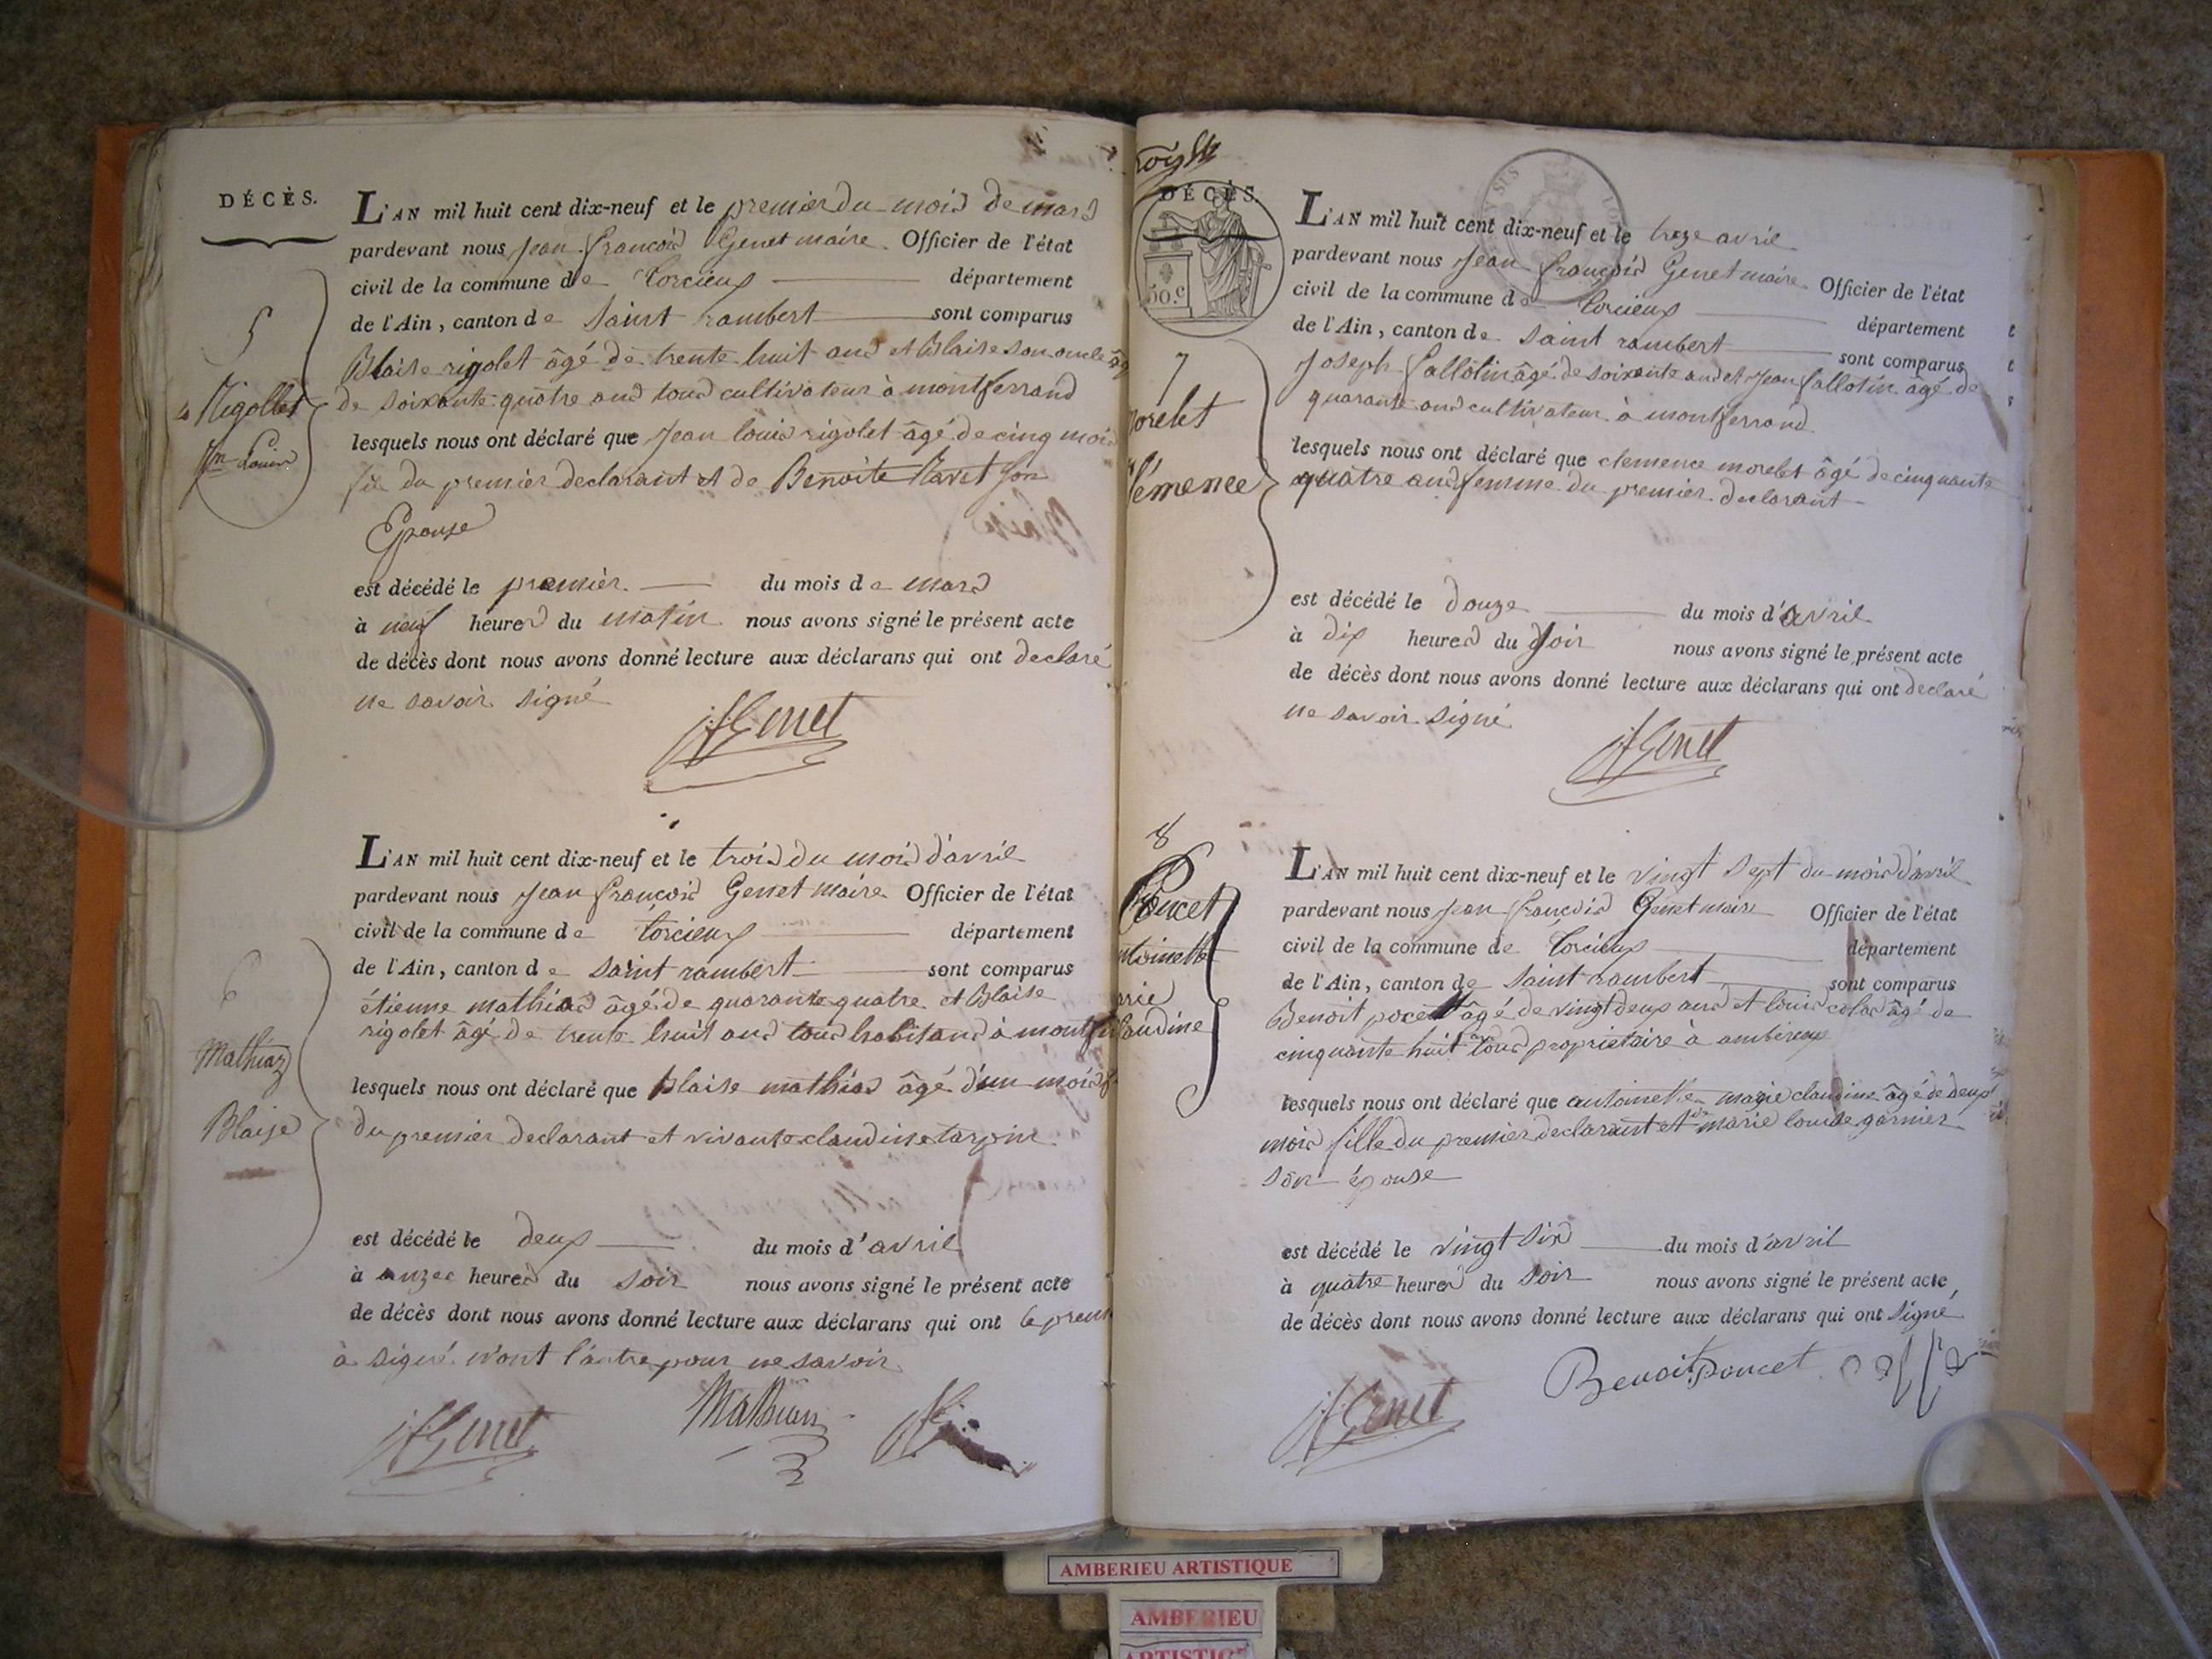 DÉCÈS.
L'AN mil huit cent dix-neuf et le premier du mois de mars
pardevant nous Jean françois Genet maire Officier de l'état
civil de la commune de torcieux département
de l'Ain, canton de Saint rambert sont comparus
Blaise rigolet âgé de trente huit ans et Blaise son oncle âg
de soixante quatre ans tous cultivateur à montferrand
lesquels nous ont déclaré que Jean louis rigolet âgé de cinq mois
fils du premier declarant et de Benoite Ravet son
Epouse
est décédé le premier du mois de mars
à neuf heures du matin nous avons signé le présent acte
de décès dont nous avons donné lecture aux déclarans qui ont declaré
ne savoir signé
jfGenet
5
Rigollet
Jn Louis
L'AN mil huit cent dix-neuf et le trois du mois d'avril
pardevant nous Jean françois Genet maire Officier de l'état
civil de la commune de torcieux département
de l'Ain, canton de Saint rambert sont comparus
étienne mathias âgé de quarante quatre et Blaise
rigolet âgé de trente huit ans tous habitans à montf
lesquels nous ont déclaré que blaise mathias âgé d'un mois f
du premier declarant et vivante claudine tarpin
est décédé le deux du mois d'avril
à onzee heures du soir nous avons signé le présent acte
de décès dont nous avons donné lecture aux déclarans qui ont le prem
à signé n'ont l'autre pour ne savoir
jfGenet Mathias
6
Mathiaz
Blaise
DÉCÈS.
50.c
L'AN mil huit cent dix-neuf et le treze avril
pardevant nous Jean françois Genet maire Officier de l'état
civil de la commune de torcieux département
de l'Ain, canton de saint rambert sont comparus
Joseph fallotin âgé de soixante ans et Jean fallotin âgé de
quarante ans cultivateur à montferrand
lesquels nous ont déclaré que clemence morelet âgé de cinquante
quatre ans femme du premier declarant
est décédé le douze du mois d'avril
à dix heures du soir nous avons signé le présent acte
de décès dont nous avons donné lecture aux déclarans qui ont declaré
ne savoir signé
jfGenet
7
morelet
lémence
L'AN mil huit cent dix-neuf et le vingt sept du mois d'avril
pardevant nous Jean françois Genet maire Officier de l'état
civil de la commune de torcieux département
de l'Ain, canton de Saint rambert sont comparus
Benoit pocet âgé de vingt deux ans et louis colas âgé de
cinquante huit ans tous proprietaire à ambérieux
lesquels nous ont déclaré que antoinette marie claudine âgé de deux
mois fille du premier declarant et de marie louise garnier
son épouse
est décédé le vingt six du mois d'avril
à quatre heures du soir nous avons signé le présent acte
de décès dont nous avons donné lecture aux déclarans qui ont signé
jfGenet Benoit poncet
8
Poncet
ntoinette
arie
laudine
AMBERIEU ARTISTIQUE
AMBERIEU
ARTISTIQUE